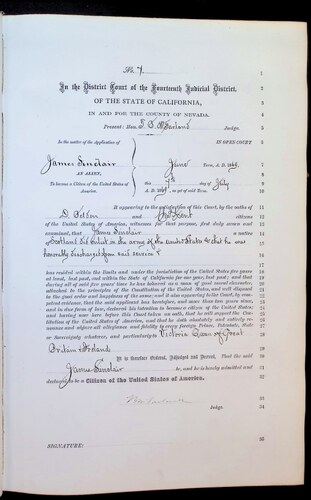 No. 7.
In the District Court of the Fourteenth Judicial District,
OF THE STATE OF CALIFORNIA,
IN AND FOR THE COUNTY OF NEVADA.
Present: Hon. Judge.
In the matter of the Application of
IN OPEN COURT
James Sinclair
June Term, A. D. 1869.
AN ALIEN,
this 7th day of July
To become a Citizen of the United States of America.
A. D. 1869, as yet of said Term.
It appearing to the satisfaction of this Court, by the oath of
D. and citizens
of the United States of America, witnesses for that purpose, first duly sworn and
examined, that James Sinclair a native
Scotland did enlist in the army of the United States & that he was
honorably discharged from said service &
has resided within the limits and under the jurisdiction of the United States five years
at least, last past, and within the State of California for one year, last past; and that
during all of said five years' time he has behaved as a man of good moral character,
attached to the principles of the Constitution of the United States, and well disposed
to the good order and happiness of the same; and it also appearing to the Court, by competent
evidence, that the said applicant has heretofore, and more than two years since,
and in due form of law, declared his intention to become a citizen of the United States;
and having now here before this Court taken an oath, that he will support the Constitution
of the United States of America, and that he doth absolutely and entirely renounce
and abjure all allegiance and fidelity to every foreign Prince, Potentate, State
or Sovereignty whatever, and particularly to Victoria Queen of Great
Britain & Ireland
It is therefore Ordered, Adjudged and Decreed, That the said
James Sinclair be, and he is hereby admitted and
declared to be a Citizen of the United States of America.
Judge.
SIGNATURE: